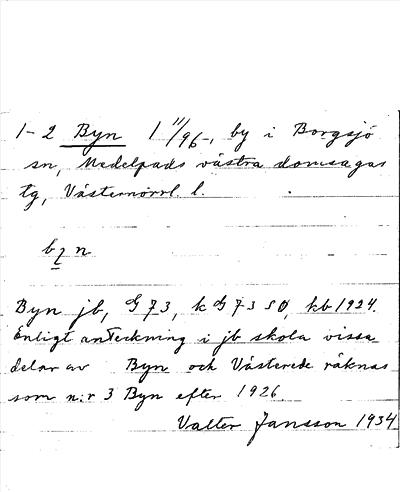 1-2 Byn 1 11/96-, by i Borgsjö
sn, Medelpads västra domsagas
tg, Västernorrl. l.
Byn jb, G 73, k G 73 SÖ, kb 1924.
Enligt anteckning i jb skola vissa
delar av Byn och Västerede räknas
som n:r 3 Byn efter 1926
Valter Jansson 1934